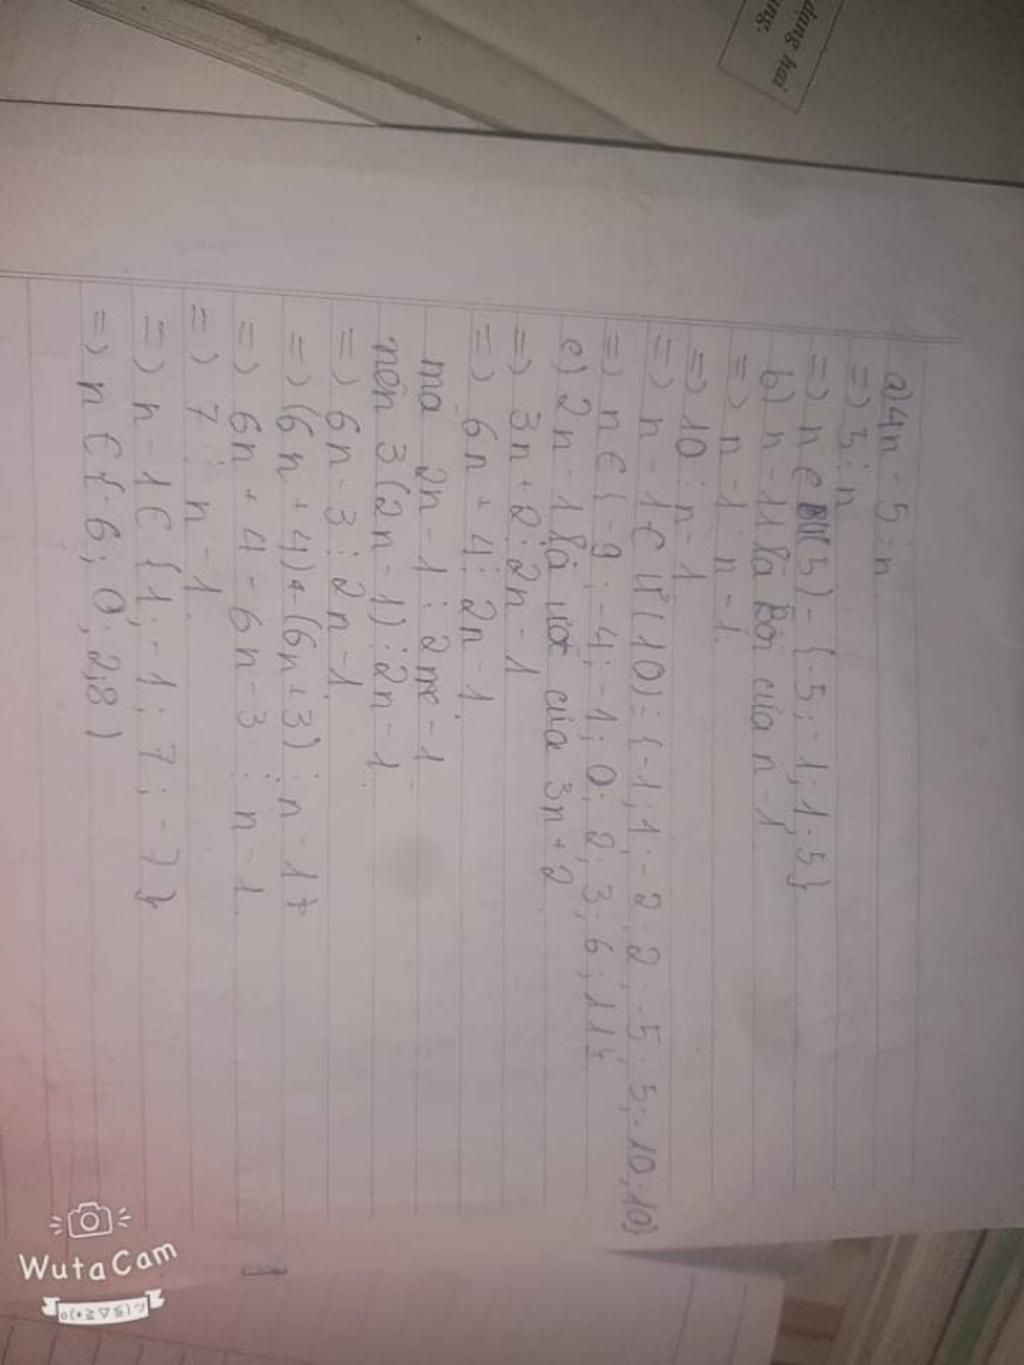 dang hai
ung.
a) 4n - 5 ⋮ n
=> 5 ⋮ n
=> n ∈ Ư(5) = {-5; -1; 1; 5}
b) n - 11 là Bội của n - 1
=> n - 1 ⋮ n - 1
=> 10 ⋮ n - 1
=> n - 1 ∈ Ư(10) = {-1; 1; -2; 2; -5; 5; -10; 10}
=> n ∈ {-9; -4; -1; 0; 2; 3; 6; 11}
c) 2n - 1 là ước của 3n + 2
=> 3n + 2 ⋮ 2n - 1
=> 6n + 4 ⋮ 2n - 1
mà 2n - 1 ⋮ 2n - 1
nên 3(2n - 1) ⋮ 2n - 1
=> 6n - 3 ⋮ 2n - 1
=> (6n + 4) - (6n + 3) ⋮ n - 1
=> 6n + 4 - 6n - 3 ⋮ n - 1
=> 7 ⋮ n - 1
=> n - 1 ∈ {1; -1; 7; -7}
=> n ∈ {-6; 0; 2; 8)
WutaCam